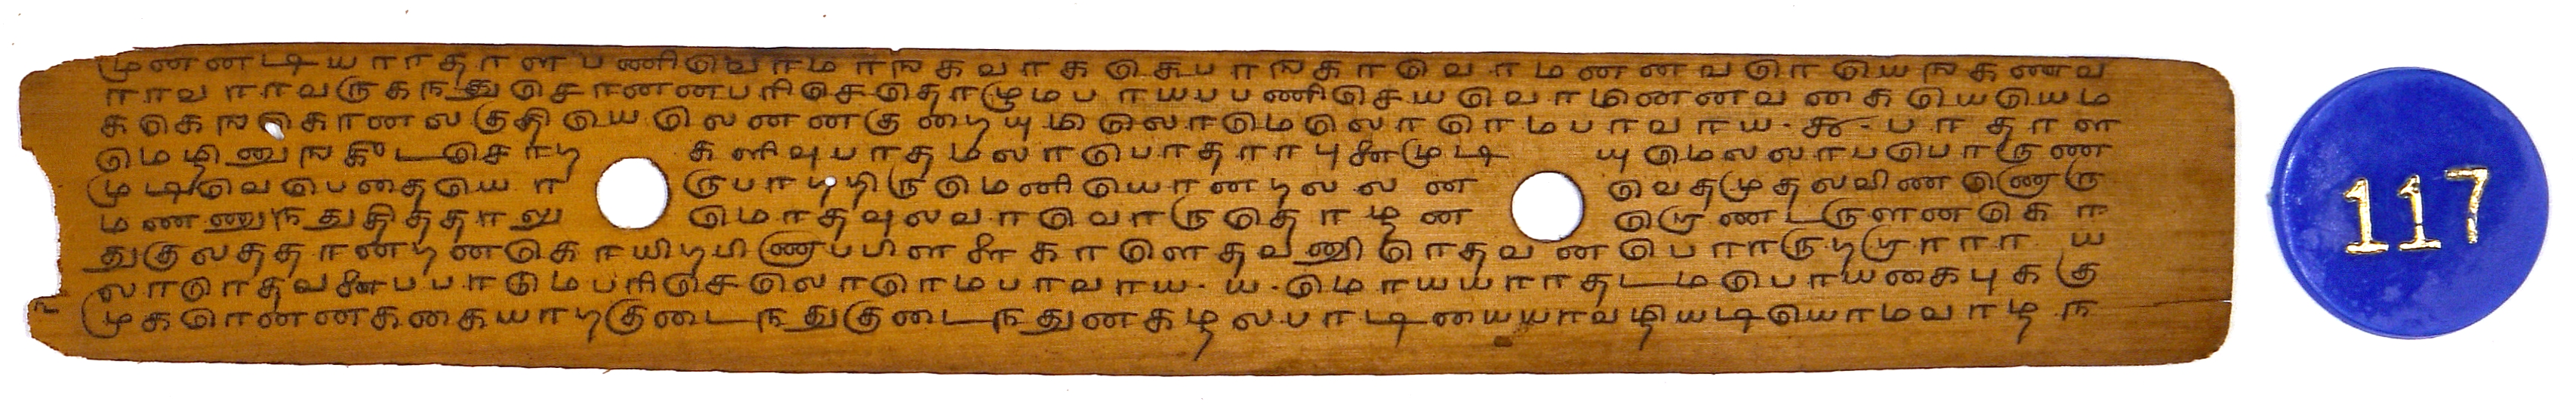 முனனடியாரதாளபணிவொமாஙகவரககெபாஙகாவொமனனவரெயெஙகணவ
ராவாரவருகநதுசொனனபரிசெதொழுமபாயபபணிசெயவொமினனவகையெயெம
ககெஙகொனலகுதியெலெனனகுறையுமிலொமெலொரெமபாவாய. ௯. பாதாள
மெழினுஙகீடசொற களிவுபாதமலரபொதாரபுனைமுடி யுமெலலாபபொருண
முடிவெபெதையொ ருபாறறிருமெனியொனறலல ன வெதமுதலவிணணொரு
மணணுநதுதிததாலு மொதவுலவாவொருதொழ ன றொணடருளனகொ
துகுலததரனறனகொயிறபிணாபபிளளைகாளெதவனூரெதவனபெராருறறாரார ய
லாரெதவனைபபாடுமபரிசெலொரெமபாவாய. ய. மொயயாரதடமபொயகைபுககு
முகெரெனனககையாறகுடைநதுகுடைநதுனகழலபாடியையாவழியடியொமவாழந